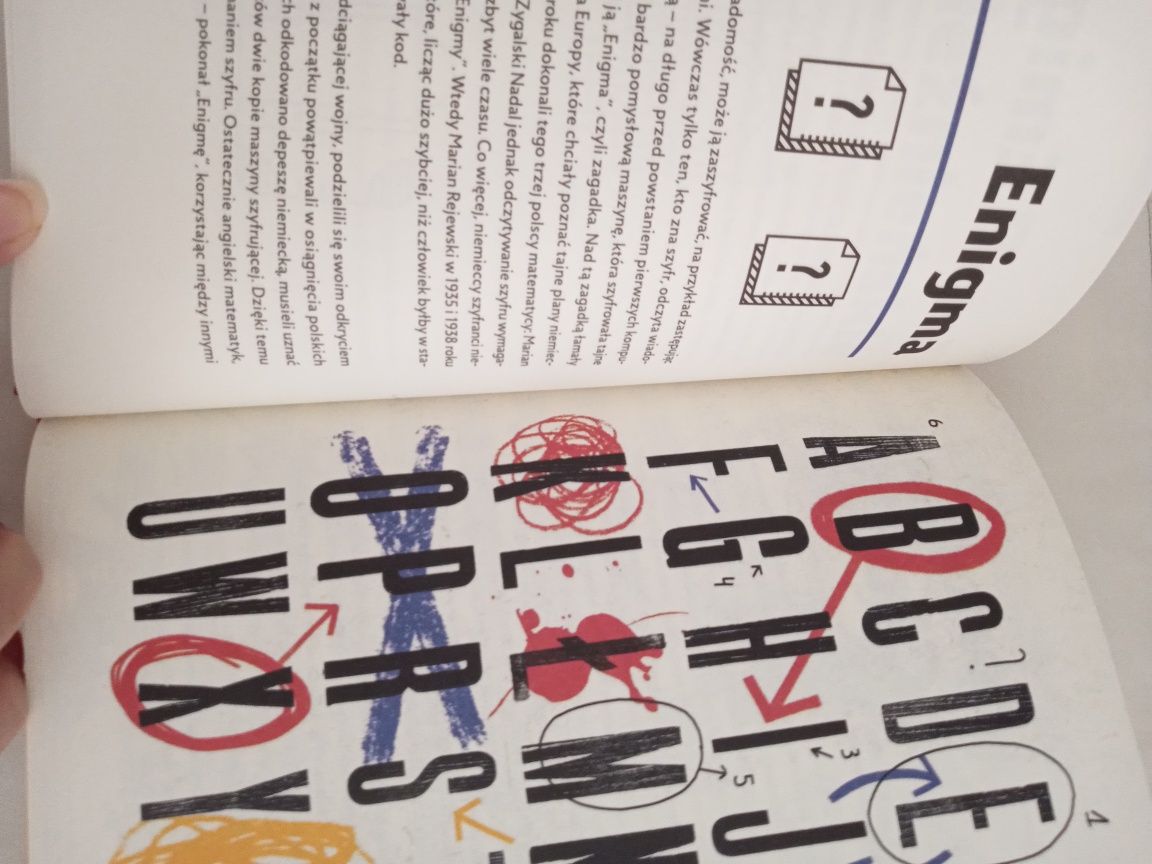 Enigma
?
?
adomość, może ją zaszyfrować, na przykład zastępując
i. Wówczas tylko ten, kto zna szyfr, odczyta wiado-
ą – na długo przed powstaniem pierwszych kompu-
bardzo pomysłową maszynę, która szyfrowała tajne
ją „Enigma”, czyli zagadka. Nad tą zagadką łamały
a Europy, które chciały poznać tajne plany niemiec-
roku dokonali tego trzej polscy matematycy: Marian
Zygalski Nadal jednak odczytywanie szyfru wymaga-
zbyt wiele czasu. Co więcej, niemieccy szyfranci nie-
Enigmy”. Wtedy Marian Rejewski w 1935 i 1938 roku
óre, licząc dużo szybciej, niż człowiek byłby w sta-
ały kod.
dciągającej wojny, podzielili się swoim odkryciem
z początku powątpiewali w osiągnięcia polskich
ch odkodowano depeszę niemiecką, musieli uznać
ów dwie kopie maszyny szyfrującej. Dzięki temu
naniem szyfru. Ostatecznie angielski matematyk,
– pokonał „Enigmę”, korzystając między innymi
6 1
A B C ? D E
F G H I J
4 3
K L Ł M N
5
O P R S
U W X Y